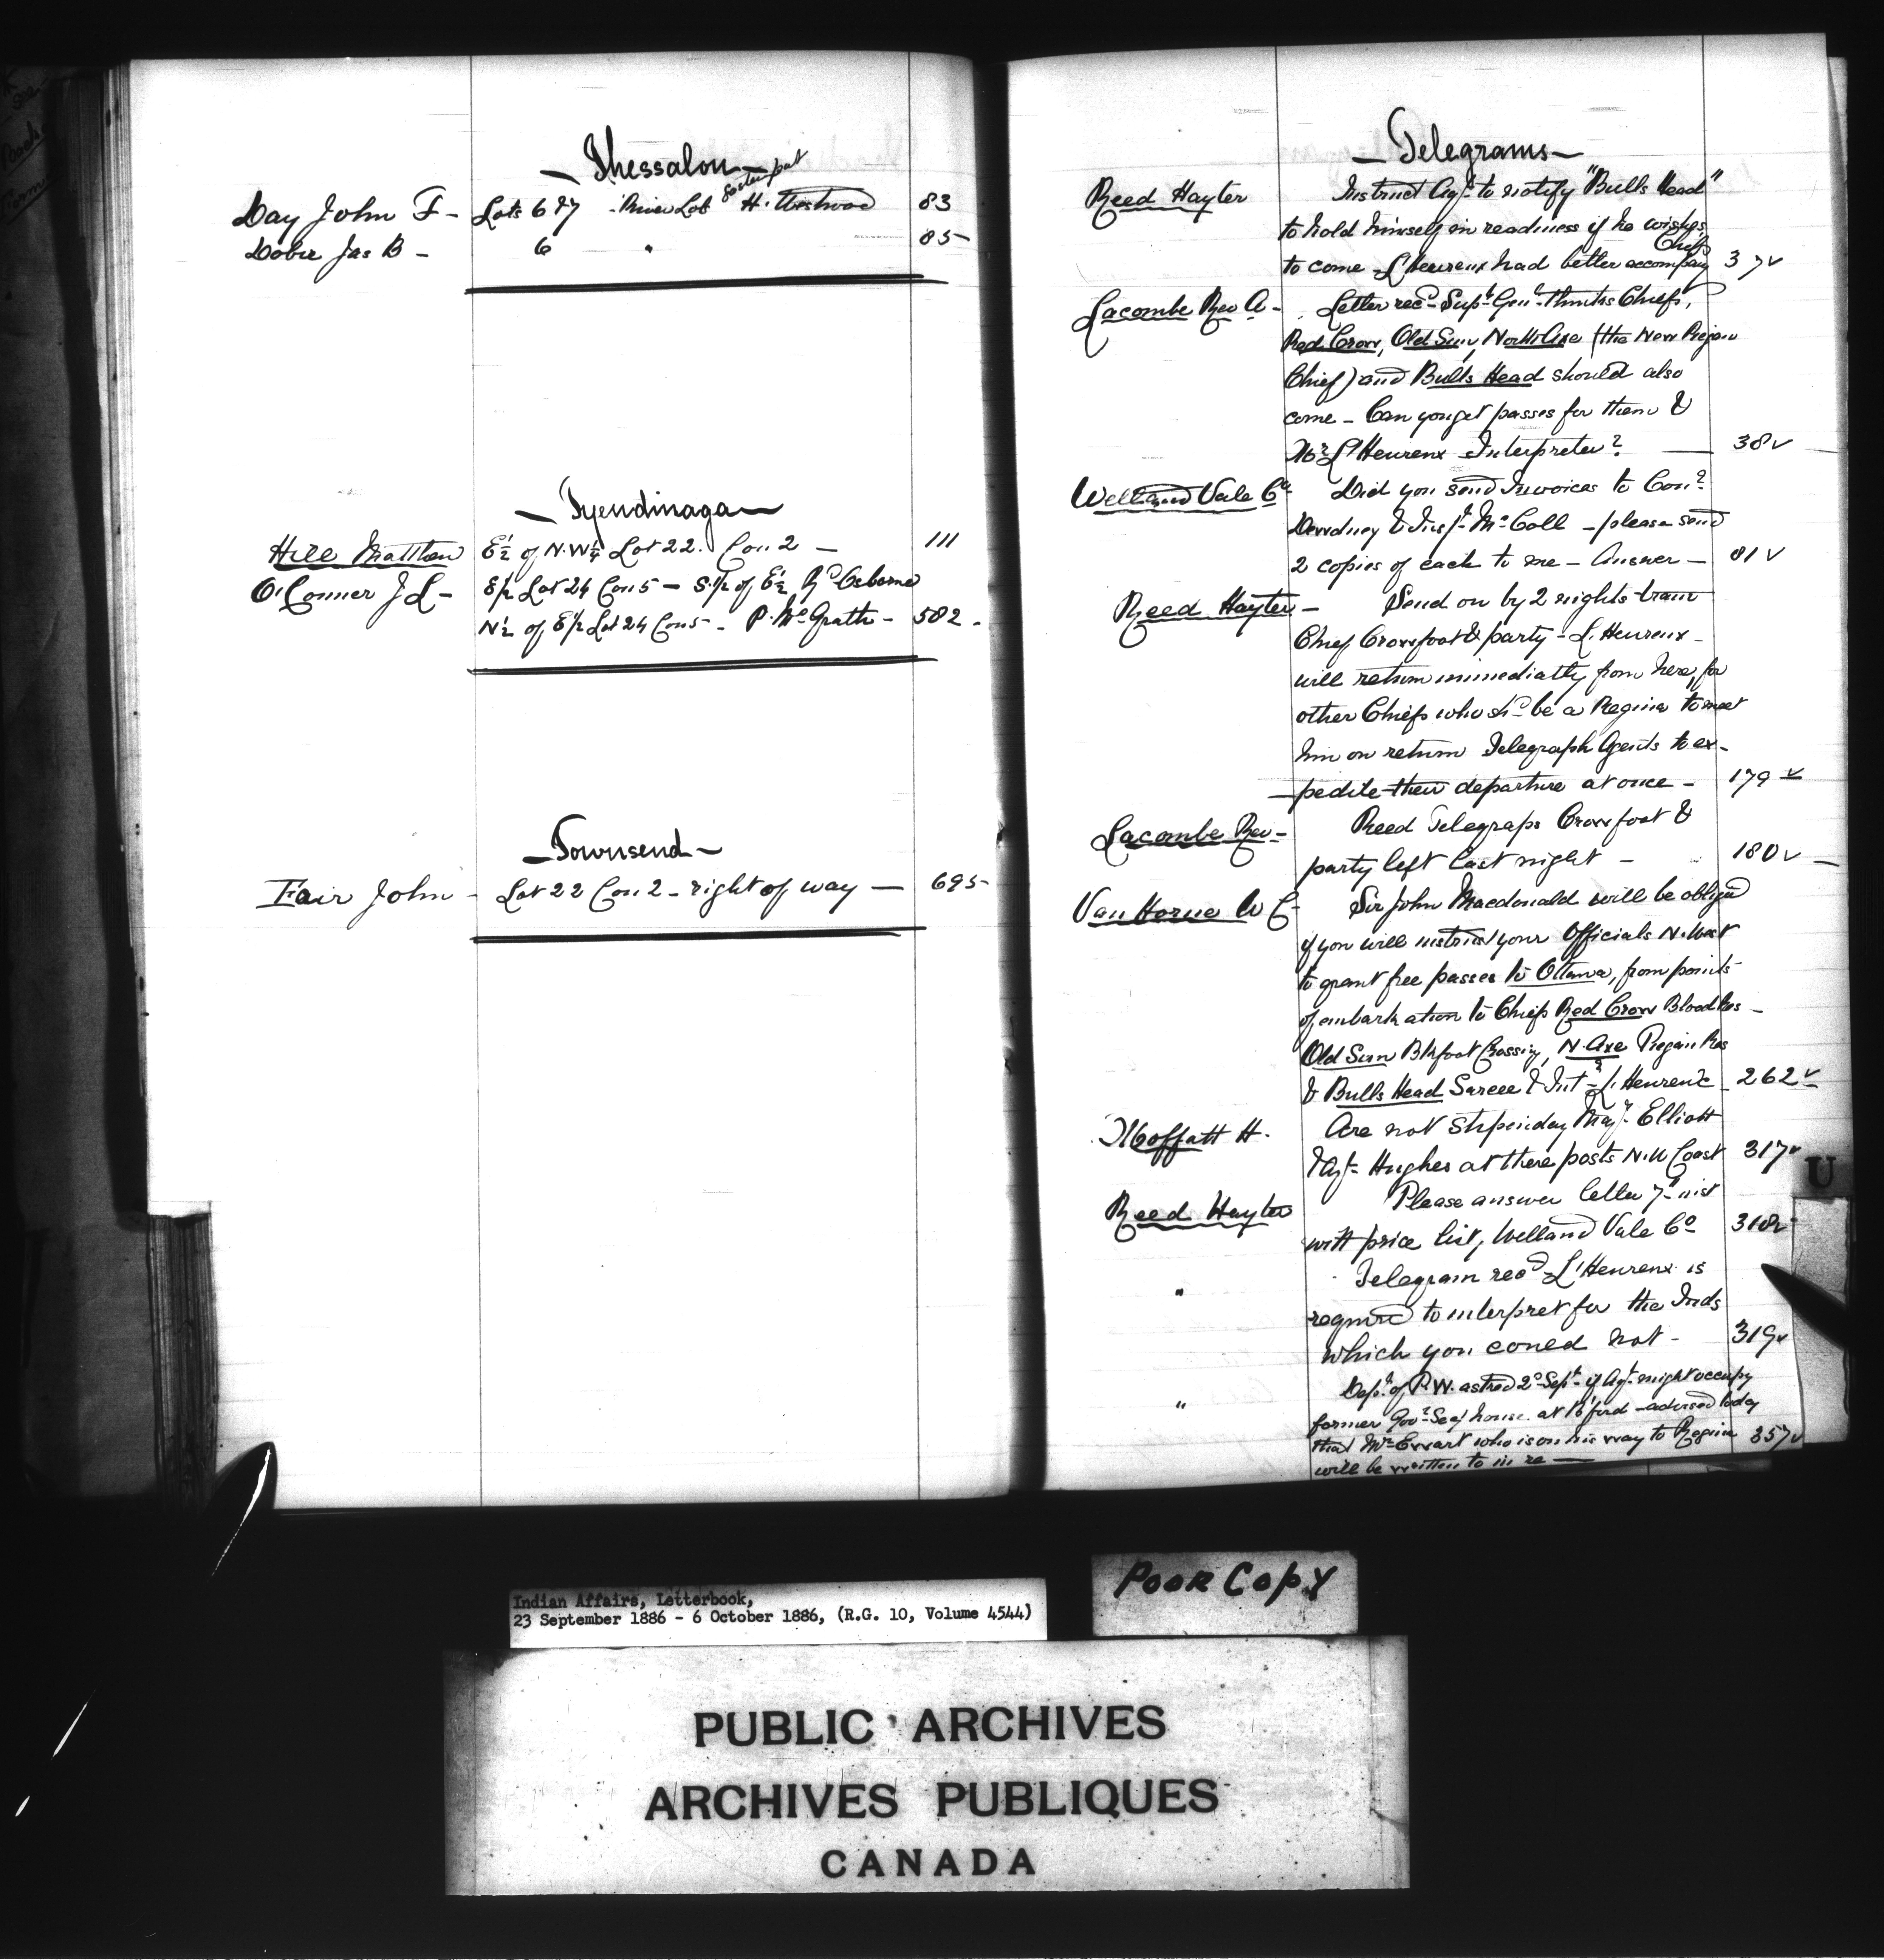 — Thessalon —
Day John F - Lots 6 & 7 River Lot H. Westwood 83
Dobie Jas B - 6 " 85
— Tyendinaga —
Hill Matthew E½ of N.W¼ Lot 22. Con 2 — 111
O'Conner J L - E½ Lot 24 Con 5 — S.½ of E½ Osborne
N½ of E½ Lot 24 Con 5 - P. McGrath - 582.
— Townsend —
Fair John - Lot 22 Con 2 - right of way — 695
— Telegrams —
Reed Hayter Instruct Agt to notify "Bulls Head"
to hold himself in readiness if he wishes
Chiefs
to come - L'Heureux had better accompany 37 ✓
Lacombe Rev A - Letter recd - Supt Genl thinks Chiefs,
Red Crow, Old Sun, North Axe (the New Piegan
Chief) and Bulls Head should also
come - Can you get passes for them &
Mr L'Heureux Interpreter? — 38 ✓
Welland Vale Co Did you send Invoices to Comr
Dewdney & Inspt McColl - please send
2 copies of each to me - Answer - 81 ✓
Reed Hayter - Send on by 2 nights train
Chief Crowfoot & party - L'Heureux -
will return immediatly from here, for
other Chiefs who shd be a Regina to meet
him on return Telegraph Agents to ex-
pedite their departure at once - 179 ✓
Lacombe Rev - Reed Telegraps Crowfoot &
party left last night - 180 ✓
Van Horne W C - Sir John Macdonald will be obliged
if you will instruct your Officials N. West
to grant free passes to Ottawa, from points
of embarkation to Chiefs Red Crow Blood Res -
Old Sun Blkfoot Crossing, N. Axe Piegan Res
& Bulls Head Sarcee & Intr L'Heureux 262 ✓
Moffatt H. Are not Stipenday Maj. Elliott
& Agt Hughes at there posts N.W Coast 317 ✓
Reed Hayter Please answer letter 7th inst
with price list, Welland Vale Co 318 ✓
" Telegram recd - L'Heureux is
required to interpret for the Inds
which you coued not - 319 ✓
" Dept of P.W. asked 2d Sept if Agt might occupy
former Govr Seaf house at B'ford - advised today
that Mr Ewart who is on his way to Regina 357 ✓
will be written to in re —
U
Indian Affairs, Letterbook,
23 September 1886 - 6 October 1886, (R.G. 10, Volume 4544)
POOR COPY
PUBLIC ARCHIVES
ARCHIVES PUBLIQUES
CANADA